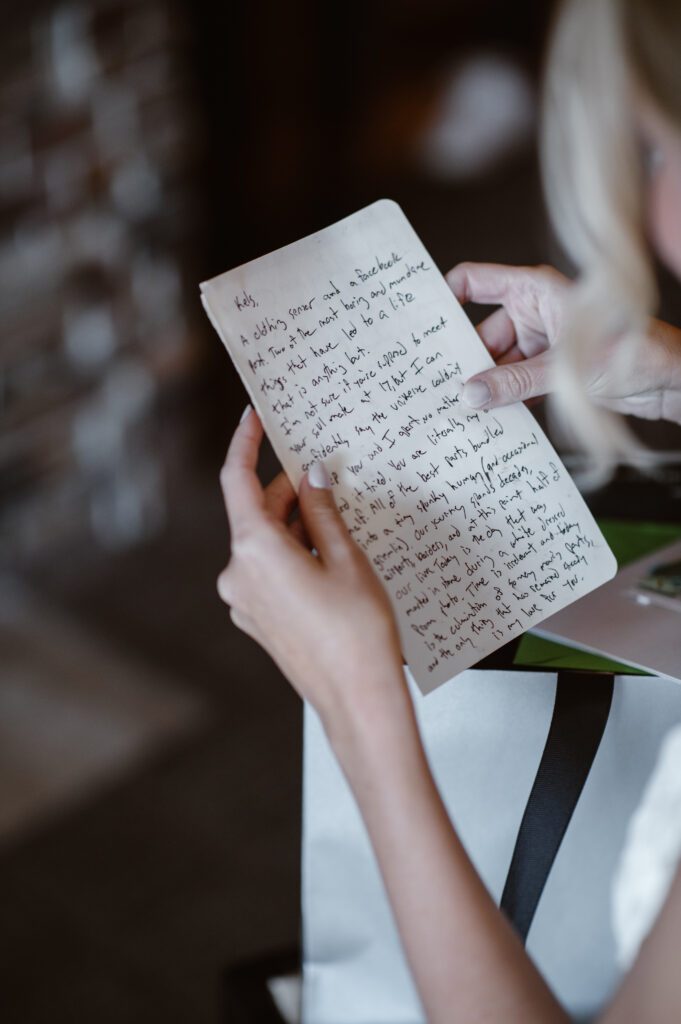 Kels,
A clothing sensor and a facebook
post. Two of the most boring and mundane
things that have led to a life
that is anything but.
I'm not sure if you're supposed to meet
your soul mate at 17, but I can
confidently say the universe couldn't
you and I apart, no matter
hard it tried. You are literally my
half. All of the best parts bundled
into a tiny spunky human (and occasional
gremlin). Our journey spans decades,
airports, borders, and at this point half of
our lives. Today is the day that was
marked in stone during a white dressed
prom photo. Time is irrelevant and today
is the culmination of so many moving parts,
and the only thing that has remained steady
is my love for you.